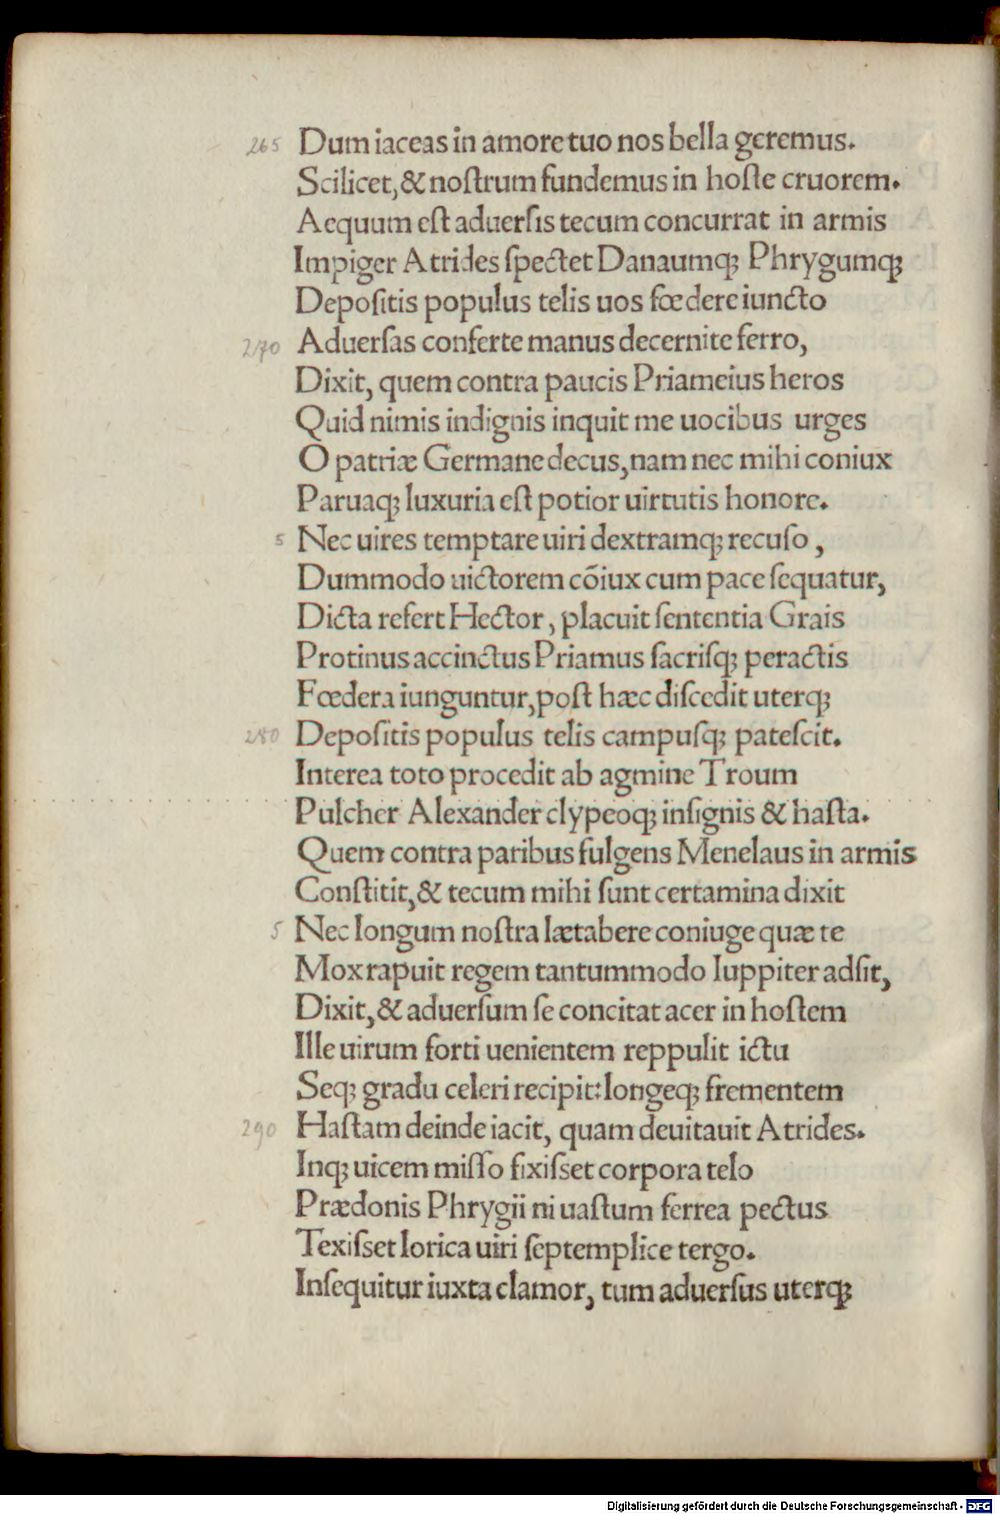 265 Dum iaceas in amore tuo nos bella geremus.
Scilicet, & noſtrum fundemus in hoſte cruorem.
Aequum eſt aduerſis tecum concurrat in armis
Impiger Atrides ſpectet Danaumq; Phrygumq;
Depoſitis populus telis uos fœdere iuncto
270 Aduerſas conferte manus decernite ferro,
Dixit, quem contra paucis Priameius heros
Quid nimis indignis inquit me uocibus urges
O patriæ Germane decus, nam nec mihi coniux
Paruaq; luxuria eſt potior uirtutis honore.
5 Nec uires temptare uiri dextramq; recuſo,
Dummodo uictorem cõiux cum pace ſequatur,
Dicta refert Hector, placuit ſententia Grais
Protinus accinctus Priamus ſacriſq; peractis
Fœdera iunguntur, poſt hæc diſcedit uterq;
280 Depoſitis populus telis campuſq; pateſcit.
Interea toto procedit ab agmine Troum
Pulcher Alexander clypeoq; inſignis & haſta.
Quem contra paribus fulgens Menelaus in armis
Conſtitit, & tecum mihi ſunt certamina dixit
5 Nec longum noſtra lætabere coniuge quæ te
Mox rapuit regem tantummodo Iuppiter adſit,
Dixit, & aduerſum ſe concitat acer in hoſtem
Ille uirum forti uenientem reppulit ictu
Seq; gradu celeri recipit: longeq; frementem
290 Haſtam deinde iacit, quam deuitauit Atrides.
Inq; uicem miſſo fixiſset corpora telo
Prædonis Phrygii ni uaſtum ferrea pectus
Texiſset lorica uiri ſeptemplice tergo.
Inſequitur iuxta clamor, tum aduerſus uterq;
Digitalisierung gefördert durch die Deutsche Forschungsgemeinschaft - DFG